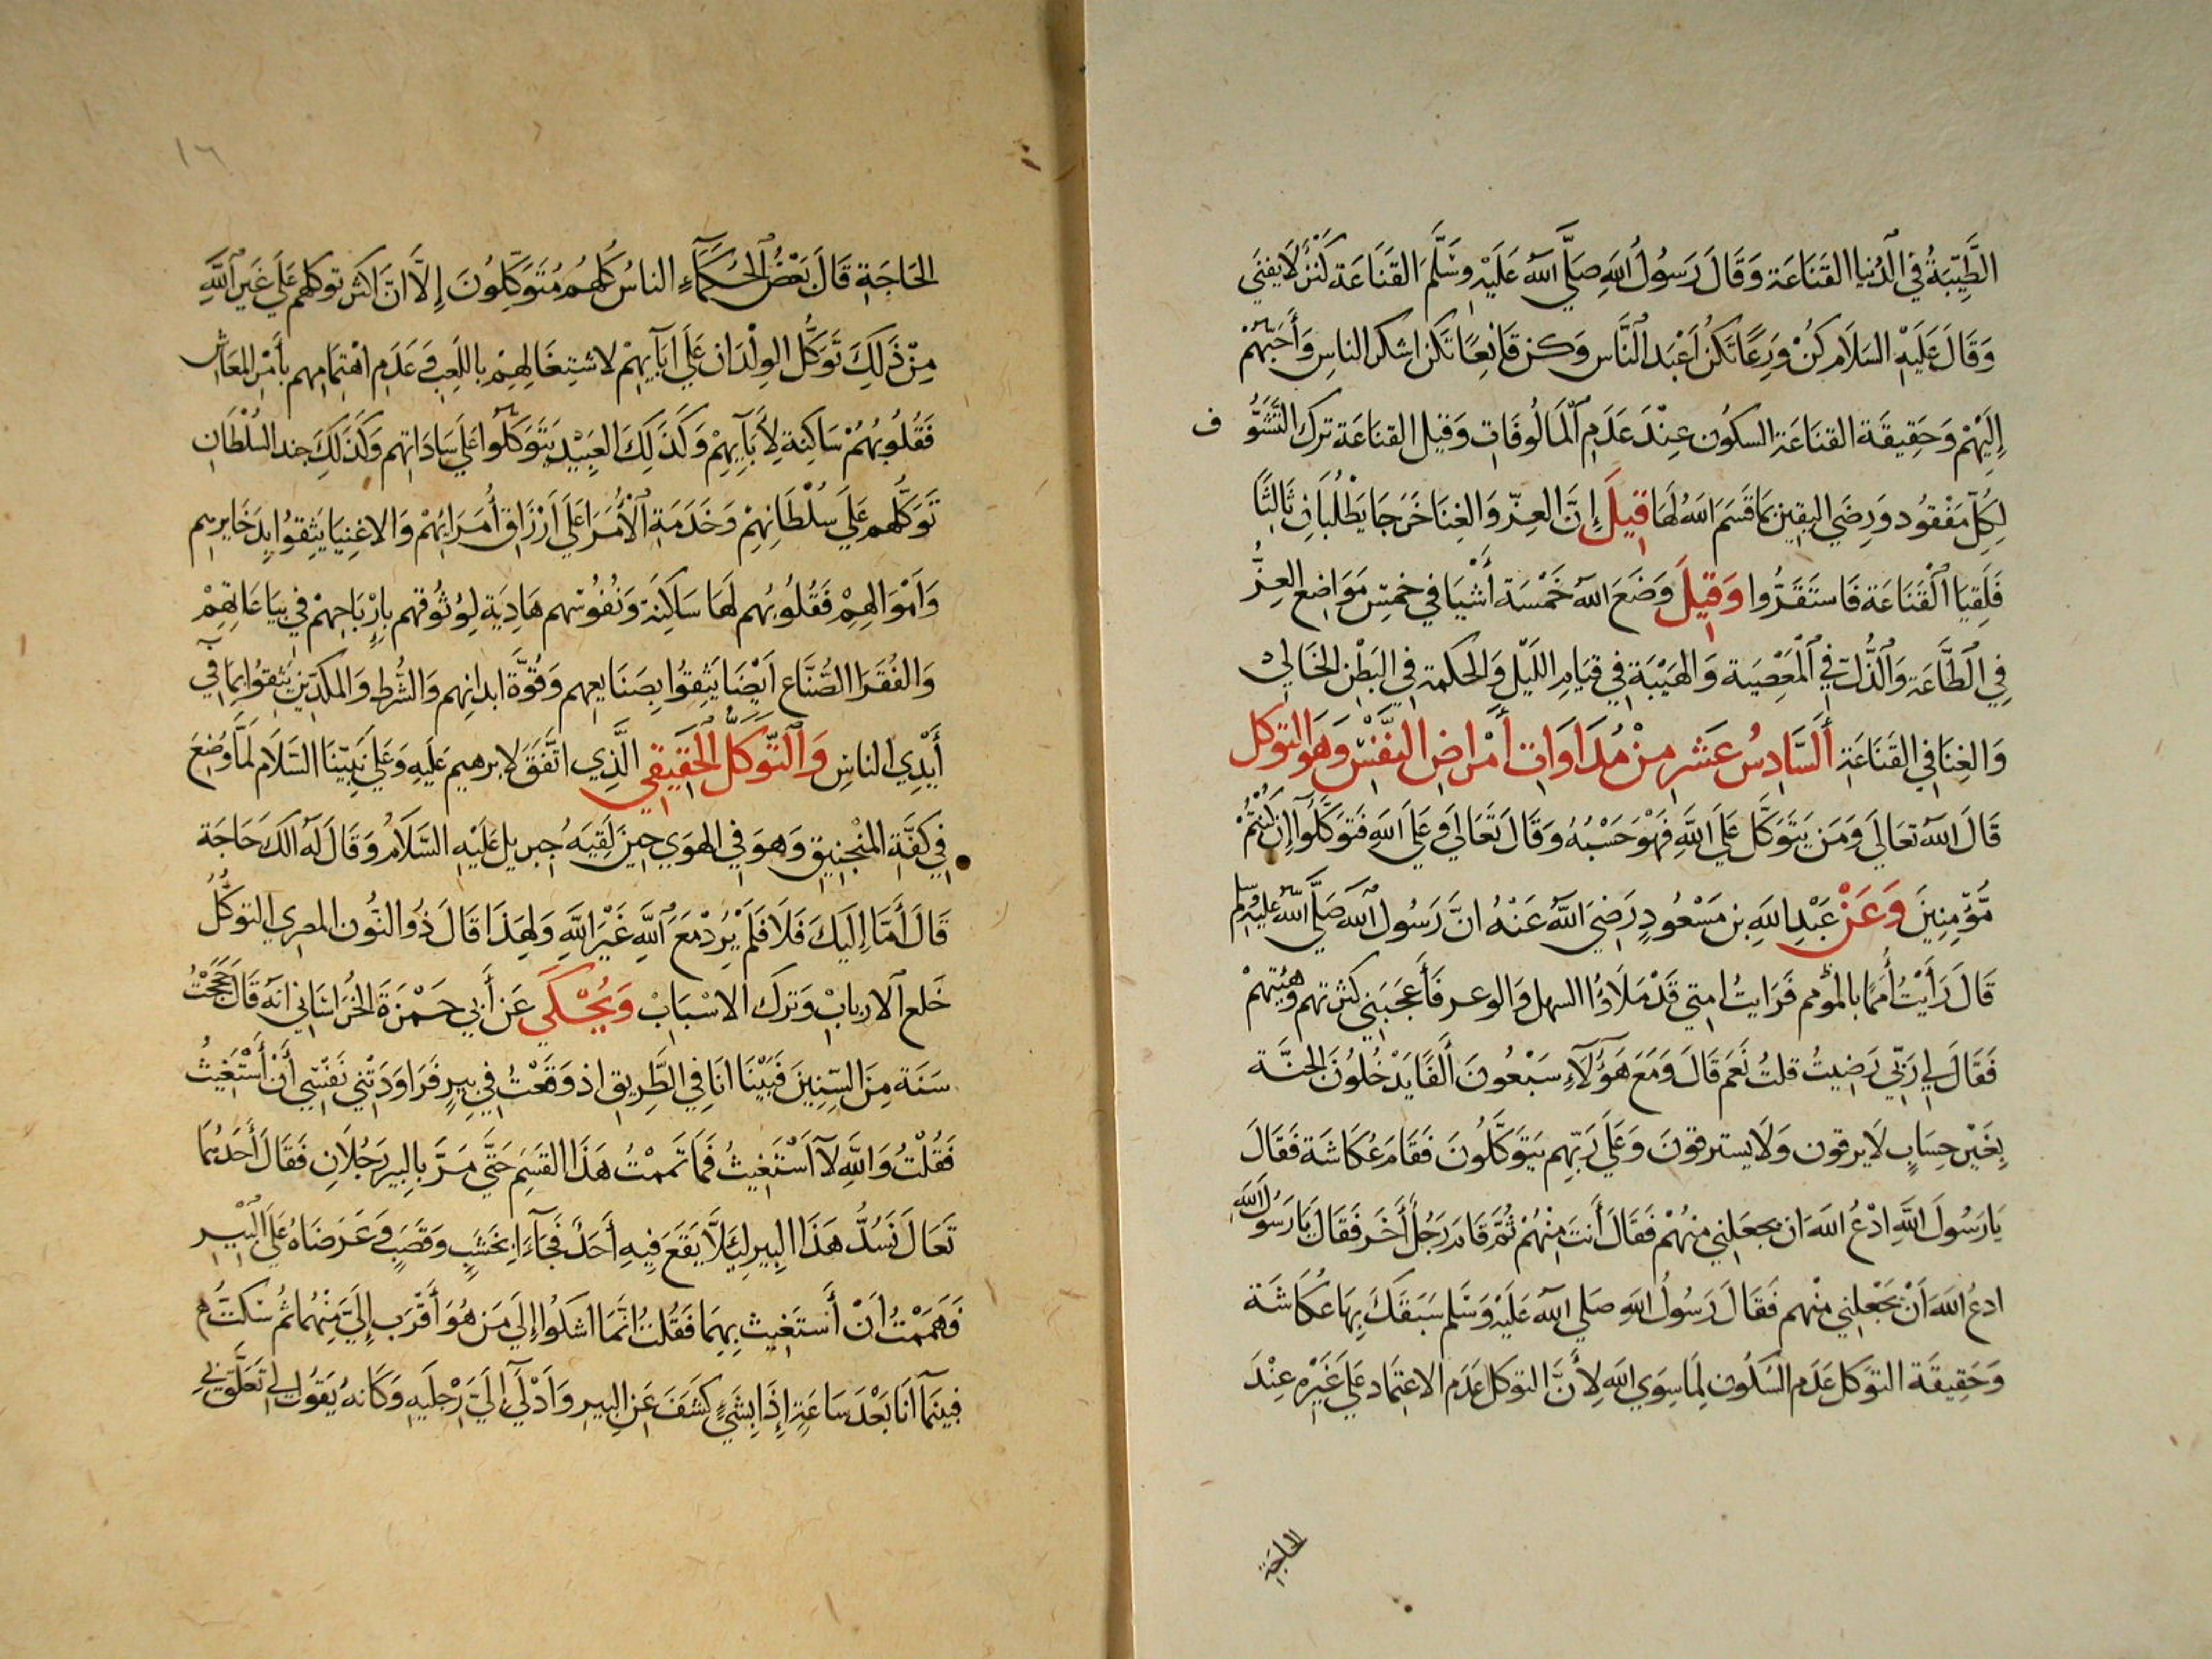 الطَّيِّبَةُ فِي الدُّنيا القَنَاعَة وَقَالَ رَسُولُ اللهِ صَلَّي اللهُ عَلَيْهِ وسَلَّمَ القَنَاعَة كَنْزٌ لَا يَفنَي
وَقَالَ عَلَيْهِ السَلَام كُنْ وَرِعًا تَكُنْ اَعْبَد النَّاس وَكن قَانِعًا تَكن اشكر الناسِ وَأَحَبّهُمْ
إِلَيْهِمْ وَحَقِيقَة القنَاعَة السكُون عِنْدَ عَدَمِ المَالُوفَاتِ وَقيل القنَاعَة ترك التَّشَوُّ ف
لِكُلِّ مَفْقُود وَرِضَي اليقين بمَا قَسَمَ اللهُ لَهَا قِيلَ إِنَّ العِزّ وَالغِنَا خَرَجَا يَطْلُبَانِ ثَالثًا
فَلَقِيَا القَنَاعَة فَاستَقَرُّوا وَقِيلَ وَضَعَ اللهُ خَمْسَة أَشْيَا في خمسِ مَوَاضِع العِزُّ
فِي الطَّاعَة وَالذُّلّ فِي المَعْصِيَة وَالهَيْبَة فِي قيَام اللَّيْل وَالحكمَة فِي البَطْن الخَالِي
وَالغِنَا فِي القَنَاعَة أَلسَّادِسُ عَشَر مِنْ مُدَاوَات أَمْرَاض النَّفْسِ وَهُو التوكل
قَالَ اللهُ تعَالَي وَمَن يَتَوَكَّل عَلَي اللهِ فَهُوَ حَسْبُهُ وَقَالَ تَعَالَي وَعَلَي اللهِ فَتَوَكَّلُوا إِن كُنْتُمْ
مُّؤمِنِينَ وَعَنْ عَبْدِ اللهِ بن مَسْعُودٍ رَضِيَ اللهُ عَنْهُ انَّ رَسُول اللهِ صَلَّي اللهُ عَلَيْهِ وسلم
قَالَ رَأَيْتُ أُمَمًا بالمؤسم فَرَايتُ امتي قَدْ مَلَاوُا السهل وَالوعر فَأَعجَبَني كثرتهم وَهَيْئَتِهِمْ
فَقَالَ لي رَبّي رَضِيتُ قلتُ نَعَم قَالَ وَمَعَ هَؤُلَاءِ سَبْعُونَ أَلْفًا يَدْخُلُونَ الجنَّة
بِغَيْرِ حِسَابٍ لَا يرقون وَلَا يسترقونَ وَعَلَي رَبّهِم يَتَوَكَّلُونَ فَقَامَ عُكَاشَة فَقَالَ
يَا رَسُولَ اللهِ ادْعُ اللهَ ان يجعَلني مِنهُمْ فَقَالَ أَنتَ مِنْهُمْ ثُمَّ قَامَ رَجُلٌ أَخَر فَقَالَ يَا رَسُولَ اللهِ
ادعُ اللهَ أَنْ يَجْعَلِني مِنْهم فَقَالَ رَسُولُ اللهِ صَلي اللهُ عَلَيْهِ وَسَلم سَبَقَكَ بِهَا عُكَاشَة
وَحَقِيقَة التوَكل عَدَم السَكُون لِمَا سِوَي اللهِ لِأَنَّ التوكل عَدَم الاعتِمَاد عَلي غَيْرِهِ عِنْدَ
الحاجَة
١٦
الحَاجَةِ قَالَ بَعْضُ الحُكَمَاءِ الناسُ كُلهُم مُتَوَكِّلُونَ إِلَّا انَّ اكثر توكلهم عَلَي غَيرِ اللهِ
مِنْ ذَلِكَ تَوَكُّل الوِلْدَان عَلَي ابَآيِهِمْ لاشتِغَالِهِمْ باللَعِب وَعَدَم اهْتِمَامِهم بأَمْر المعَاش
فَقُلُوبُهُمْ سَاكِنة لِأَبَآيِهِمْ وَكَذَلِكَ العَبِيْد يَتَوَكّلُوا عَلَي سَادَاتِهم وَكَذَلِكَ جند السُلْطَان
تَوَكُّلهم عَلَي سُلْطَانِهِمْ وَخَدَمَة الأُمَرَا عَلَي اَرْزَاق أُمَرَائِهُمْ وَالاغنِيَا يَثِقوُا بِذَخَايرهِم
وَاَمْوَالهِمْ فَقُلُوبُهم لَهَا سَاكِنَة وَنُفُوسُهم هَادِيَة لِوُثُوقهم بِارْبَاحِهمْ في بيَاعَاتِهِمْ
وَالفُقَرَا الصُّنَّاع اَيْضًا يَثِقوُا بِصَنَايعِهم وَقُوَّة ابدانِهم وَالشُرط وَالمكدّين يَثِقوُا بِمَا فِي
أَيْدِي الناسِ وَالتَّوَكُلُّ الحَقِيقي الَّذِي اتَّفَقَ لإبرهيم عَلَيهِ وَعَلَي نَبِيّنَا السَّلَام لَمَّا وُضِعَ
فِي كفَّةِ المنْجنِيق وَهوَ فِي الهوَي حِينَ لَقِيَهُ جِبريل عَلَيْهِ السَّلَامُ وَقَالَ لَهُ الَكَ حَاجَة
قَالَ أَمَّا إِلَيكَ فَلَا فَلَمْ يُرِدْ مَعَ اللهِ غَيْرَ اللهِ وَلِهَذَا قَالَ ذُو النُّون المصري التوكُّل
خَلع الارباب وَترَك الاسْبَابْ وَيُحْكَي عَن أَبي حَمْزَة الخُرَاسَاني انّهُ قَالَ حَجَجْتُ
سَنَة مِنَ السِّنِينَ فَبَيْنَا انَا فِي الطَّرِيق اذ وَقَعْتُ فِي بِيرٍ فَرَاوَدَتْني نَفْسِي أَنْ أَسْتَغِيثُ
فَقُلْتُ وَاللهِ لَا اَسْتَغِيثُ فَمَا تَممْتُ هَذَا القسَمِ حَتَّي مَرَّ بِالبِير رَجُلَانِ فَقَالَ أَحَدُهُمَا
تَعَالَ نَسُدُّ هَذَا البِير لِيَلَّا يَقَعَ فِيهِ أَحَدٌ فَجَآءَا بخَشَبٍ وَقَصَبٍ وَعَرَضَاهُ عَلَي البِّيرِ
فَهَمَمْتُ أَنْ أَستَغِيث بِهِمَا فَقُلتُ انَّمَا اشكُوا إِلَي مَن هُوَ أَقْرَب إِلَيَّ مِنْهُمَا ثُم سَكتُّ
فبينَمَا أَنَا بَعْدَ سَاعَة إِذَا بِشَيْءٍ كَشَفَ عَنِ البيرِ وَاَدْلَي إِلَيَّ رِجلَيهِ وَكَانهُ يَقُول لي تَعَلَّق بي